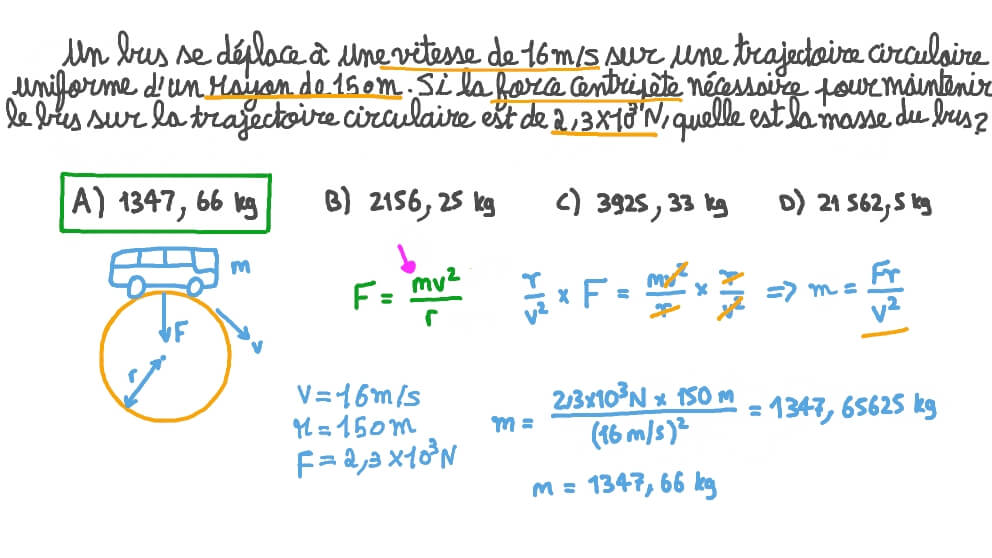 Un bus se déplace à une vitesse de 16 m/s sur une trajectoire circulaire
uniforme d'un rayon de 150 m. Si la force centripète nécessaire pour maintenir
le bus sur la trajectoire circulaire est de 2,3×10³ N, quelle est la masse du bus ?
A) 1347,66 kg B) 2156,25 kg C) 3925,33 kg D) 21 562,5 kg
m
F
v
r
F = mv²/r
r/v² × F = mv²/r × r/v² => m = Fr/v²
V = 16 m/s
r = 150 m
F = 2,3×10³ N
m = 2,3×10³ N × 150 m / (16 m/s)² = 1347,65625 kg
m = 1347,66 kg